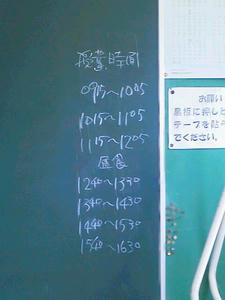 授業時間
0915~1005
1015~1105
1115~1205
昼食
1240~1330
1340~1430
1440~1530
1540~1630
お願い
黒板に押しピ
テープを貼
でください。